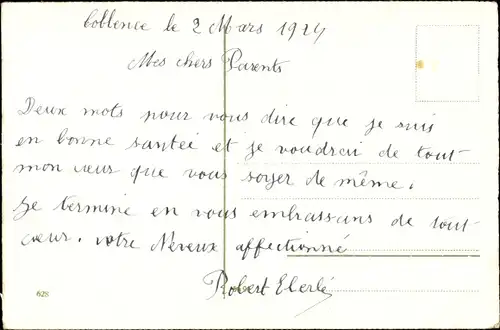 Coblence le 2 Mars 1924
Mes chers Parents
Deux mots pour vous dire que je suis
en bonne santée et je voudrai de tout
mon cœur que vous soyer de même.
Je termine en vous embrassans de tout
cœur. votre Neveux affectionné
Robert Eberlé
628